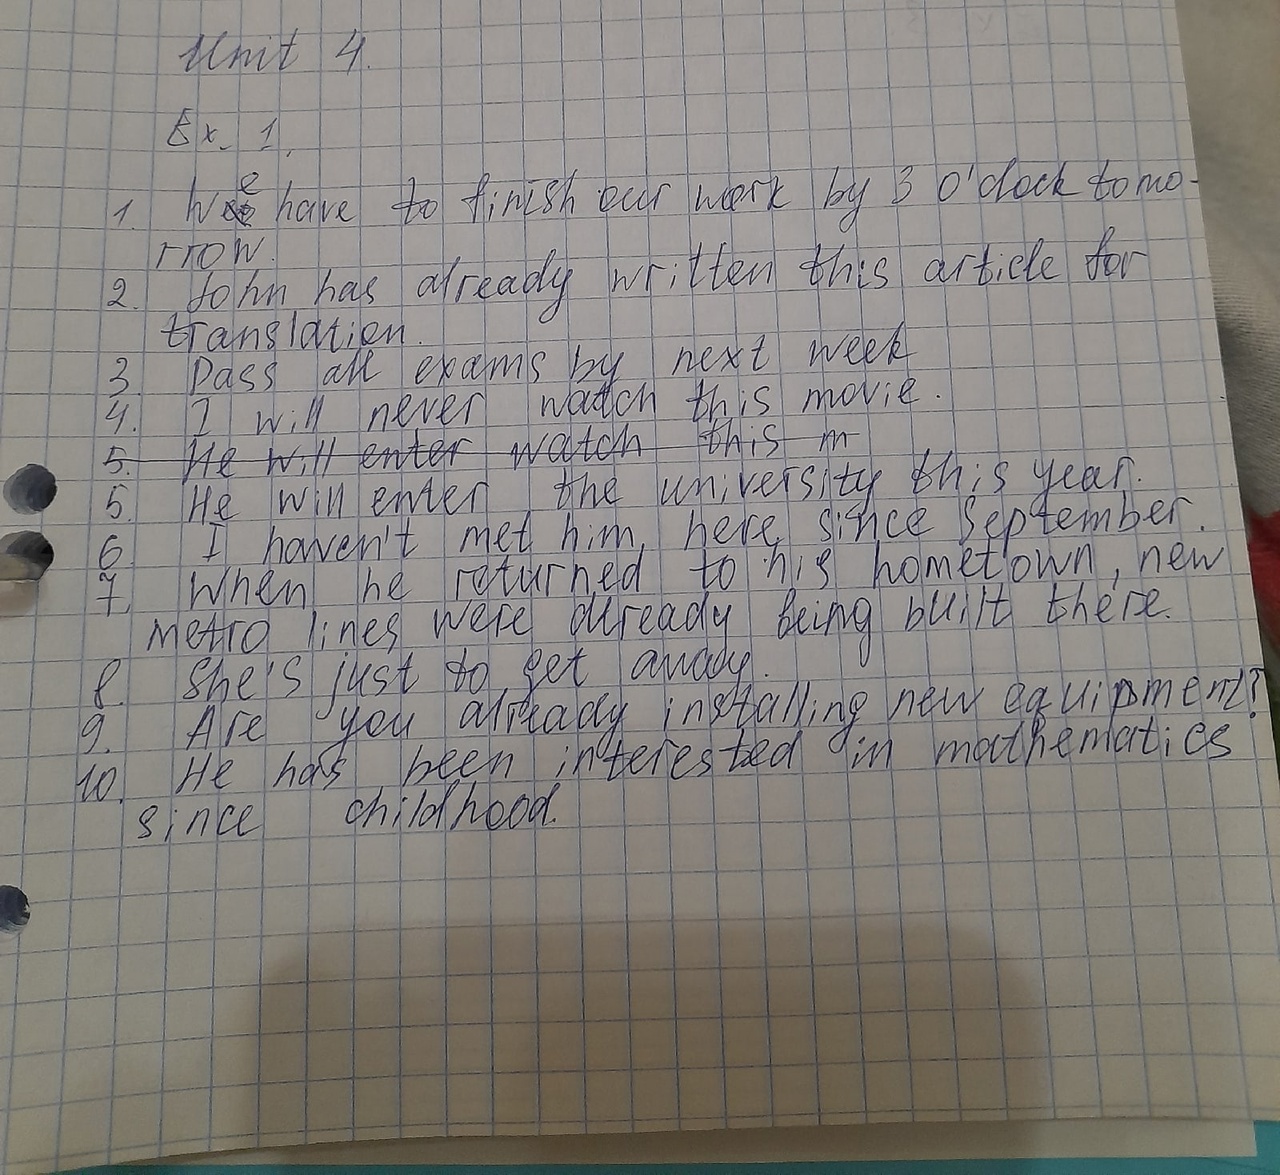 Unit 4.
Ex. 1.
1. We have to finish our work by 3 o'clock tomo-
rrow.
2. John has already written this article for
translation.
3. Pass all exams by next week
4. I will never watch this movie.
5. He will enter watch this m
5. He will enter the university this year.
6. I haven't met him here since September.
7. When he returned to his hometown, new
metro lines were already being built there.
8. She's just to get away.
9. Are you already installing new equipment?
10. He has been interested in mathematics
since childhood.